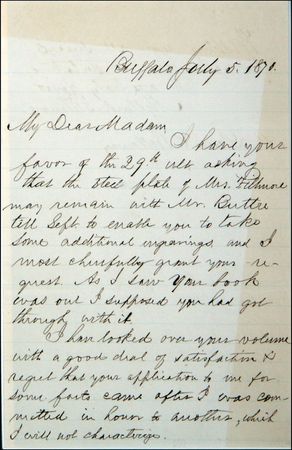 Buffalo July 5. 1870.
My Dear Madam
I have your
favor of the 29th ult asking
that the steel plate of Mrs. Fillmore
may remain with Mr. Buttre
till Sept to enable you to take
some additional impressings, and I
most cheerfully grant your re-
quest. As I saw your book
was out I supposed you had got
through with it.
I have looked over your volume
with a good deal of satisfaction &
regret that your application to me for
some facts came after I was com-
mitted in honor to another, which
I will not characterize.